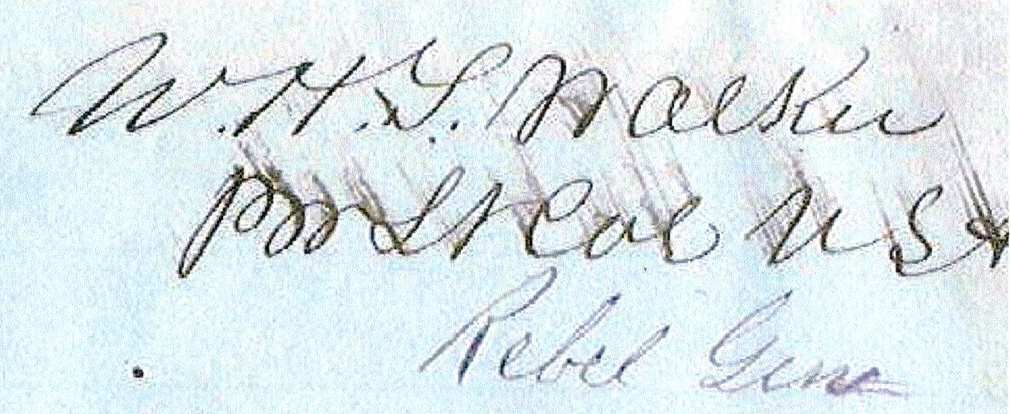 W.H.T. Walker
Bvt Lt Col U S A
Rebel Genl